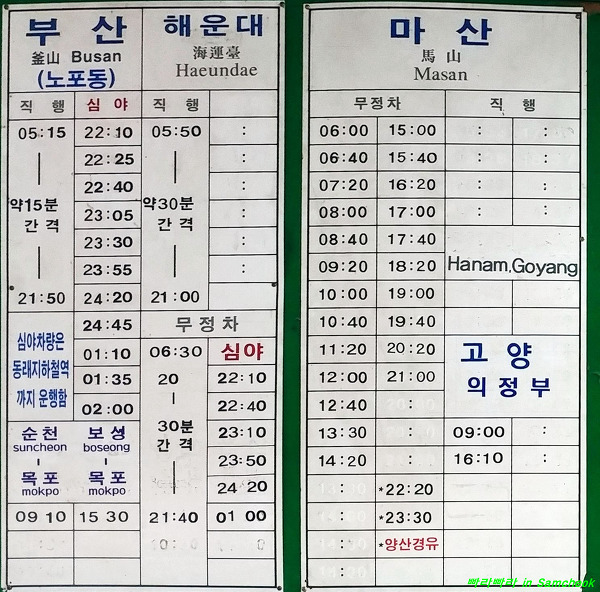 부 산
釜山 Busan
(노포동)
해운대
海運臺
Haeundae
직 행 심 야 직 행
05:15 22:10 05:50 :
22:25 :
22:40 :
약15분 23:05 약30분 :
간 격 간 격
23:30 :
23:55 :
21:50 24:20 21:00
심야차량은
동래지하철역
까지 운행함
24:45 무정차
01:10 06:30 심야
01:35 20 22:10
02:00 22:40
순천 보성 30분 23:10
suncheon boseong 간격
목포 목포 23:50
mokpo mokpo 24 20
09 10 15 30 21:40 01 00
마 산
馬 山
Masan
무정차 직 행
06:00 15:00 : :
06:40 15:40 : :
07:20 16:20 : :
08:00 17:00 : :
08:40 17:40
09:20 18:20 Hanam,Goyang
10:00 19:00
10:40 19:40
11:20 20:20 고 양
12:00 21:00 의정부
12:40
13:30 09:00 :
14:20 16:10 :
*22:20
*23:30
: *양산경유
빡락빡락 in Samchook